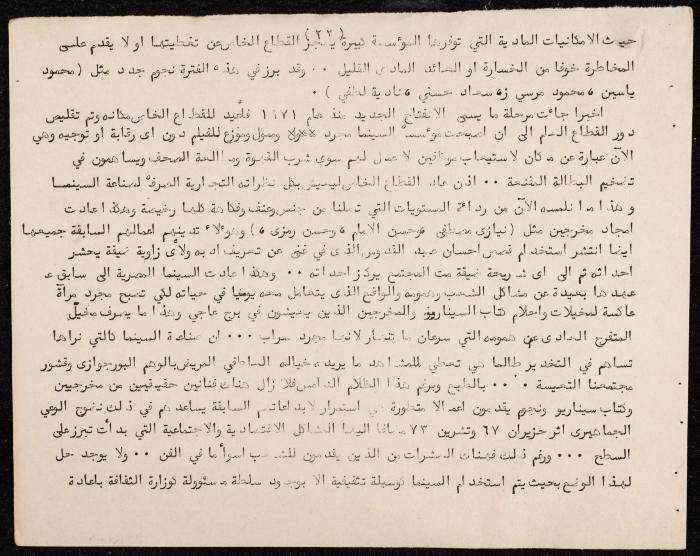 (٢٢)
حيث الامكانيات المادية التي توفرها المؤسسة كبيرة يعجز القطاع الخاص عن تغطيتها او لا يقدم على
المخاطرة خوفا من الخسارة او العائد المادي القليل ٠٠ وقد برز في هذه الفترة نجوم جدد مثل (محمود
ياسين ، محمود مرسي ، سعاد حسني ، نادية لطفي) ٠
اخيرا جائت مرحلة ما يسمى الانفتاح الجديد منذ عام ١٩٧١ فأعيد للقطاع الخاص مكانه وتم تقليص
دور القطاع العام الى ان اصبحت مؤسسة السينما مجرد ممول وموزع للفيلم دون اى رقابة او توجيه وهي
الآن عبارة عن مكان لاستيعاب موظفين لا عمل لهم سوى شرب القهوة ومطالعة الصحف ويساهمون في
تضخيم البطالة المقنعة ٠٠ اذن عاد القطاع الخاص ليعيش بكل نظراته التجارية الصرفة لصناعة السينما
وهذا ما نلمسه الآن من رداءة المستويات التي تصلنا من جنس وعنف وفكاهة كلها رخيصة وهكذا عادت
امجاد مخرجين مثل (نيازى مصطفى ، حسن الامام ، حسن رمزى ،) وهؤلاء تدينهم اعمالهم السابقة جميعها
ايضا انتشر استخدام قصص احسان عبد القدوس الذى في غنى عن تعريف ادبه ولأى زاوية ضيقة يحشر
احداثه ثم الى اى شريحة ضيقة من المجتمع يركز احداثه ٠٠ وهكذا عادت السينما المصرية الى سابق
عهدها بعيدة عن مشاكل الشعب وهمومه والواقع الذى يتعامل معه يوميا في حياته لكي تصبح مجرد مرآة
عاكسة لمخيلات واحلام كتاب السيناريو والمخرجين الذين يعيشون في برج عاجي وهذا ما يصرف مخيل
المتفرج العادى عن همومه التي سرعان ما لانها مجرد سراب ٠٠٠ ان صناعة السينما كالتي نراها
تساهم في التخدير طالما هي تعطي للمشاهد ما يريده خياله العاطفي المريض بالوهم البورجوازى وقشور
مجتمعنا التعيسة ٠٠٠ بالطبع وبرغم هذا الظلام الدامس فلا زال هناك فنانين حقيقيين من مخرجيين
وكتاب سيناريو ونجوم يقدمون اعمالا متطورة هي استمرار لابداعاتهم السابقة يساعدهم في ذلك نضوج الوعي
الجماهيرى اثر حزيران ٦٧ وتشرين ٧٣ مضافا اليها المشاكل الاقتصادية والاجتماعية التي بدأت تبرز على
السطح ٠٠٠ ورغم ذلك فهناك العشرات من الذين يقدمون للشعب اسوأ ما في الفن ٠٠ ولا يوجد حل
لهذا الوضع بحيث يتم استخدام السينما كوسيلة تثقيفية الا بوجود سلطة مسئوولة كوزارة الثقافة باعادة